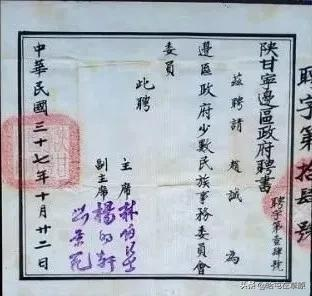 聘字第拾肆號
陝甘寧邊區政府聘書
聘字第壹肆號
茲聘請 趙誠 為
邊區政府少數民族事務委員會
委員
此聘
主席 林伯渠
副主席 楊明軒
劉景范
中華民國三十七年十月廿二日
陝甘
头条